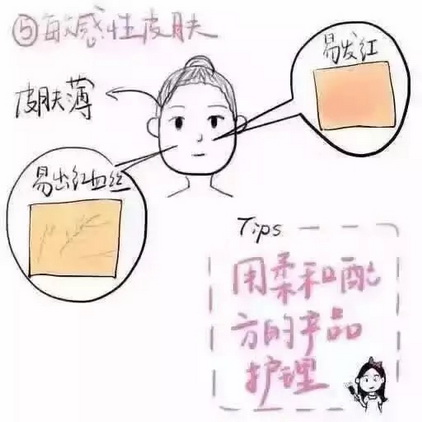 ⑤敏感性皮肤
易发红
皮肤薄
易出红血丝
Tips
用柔和配
方的产品
护理